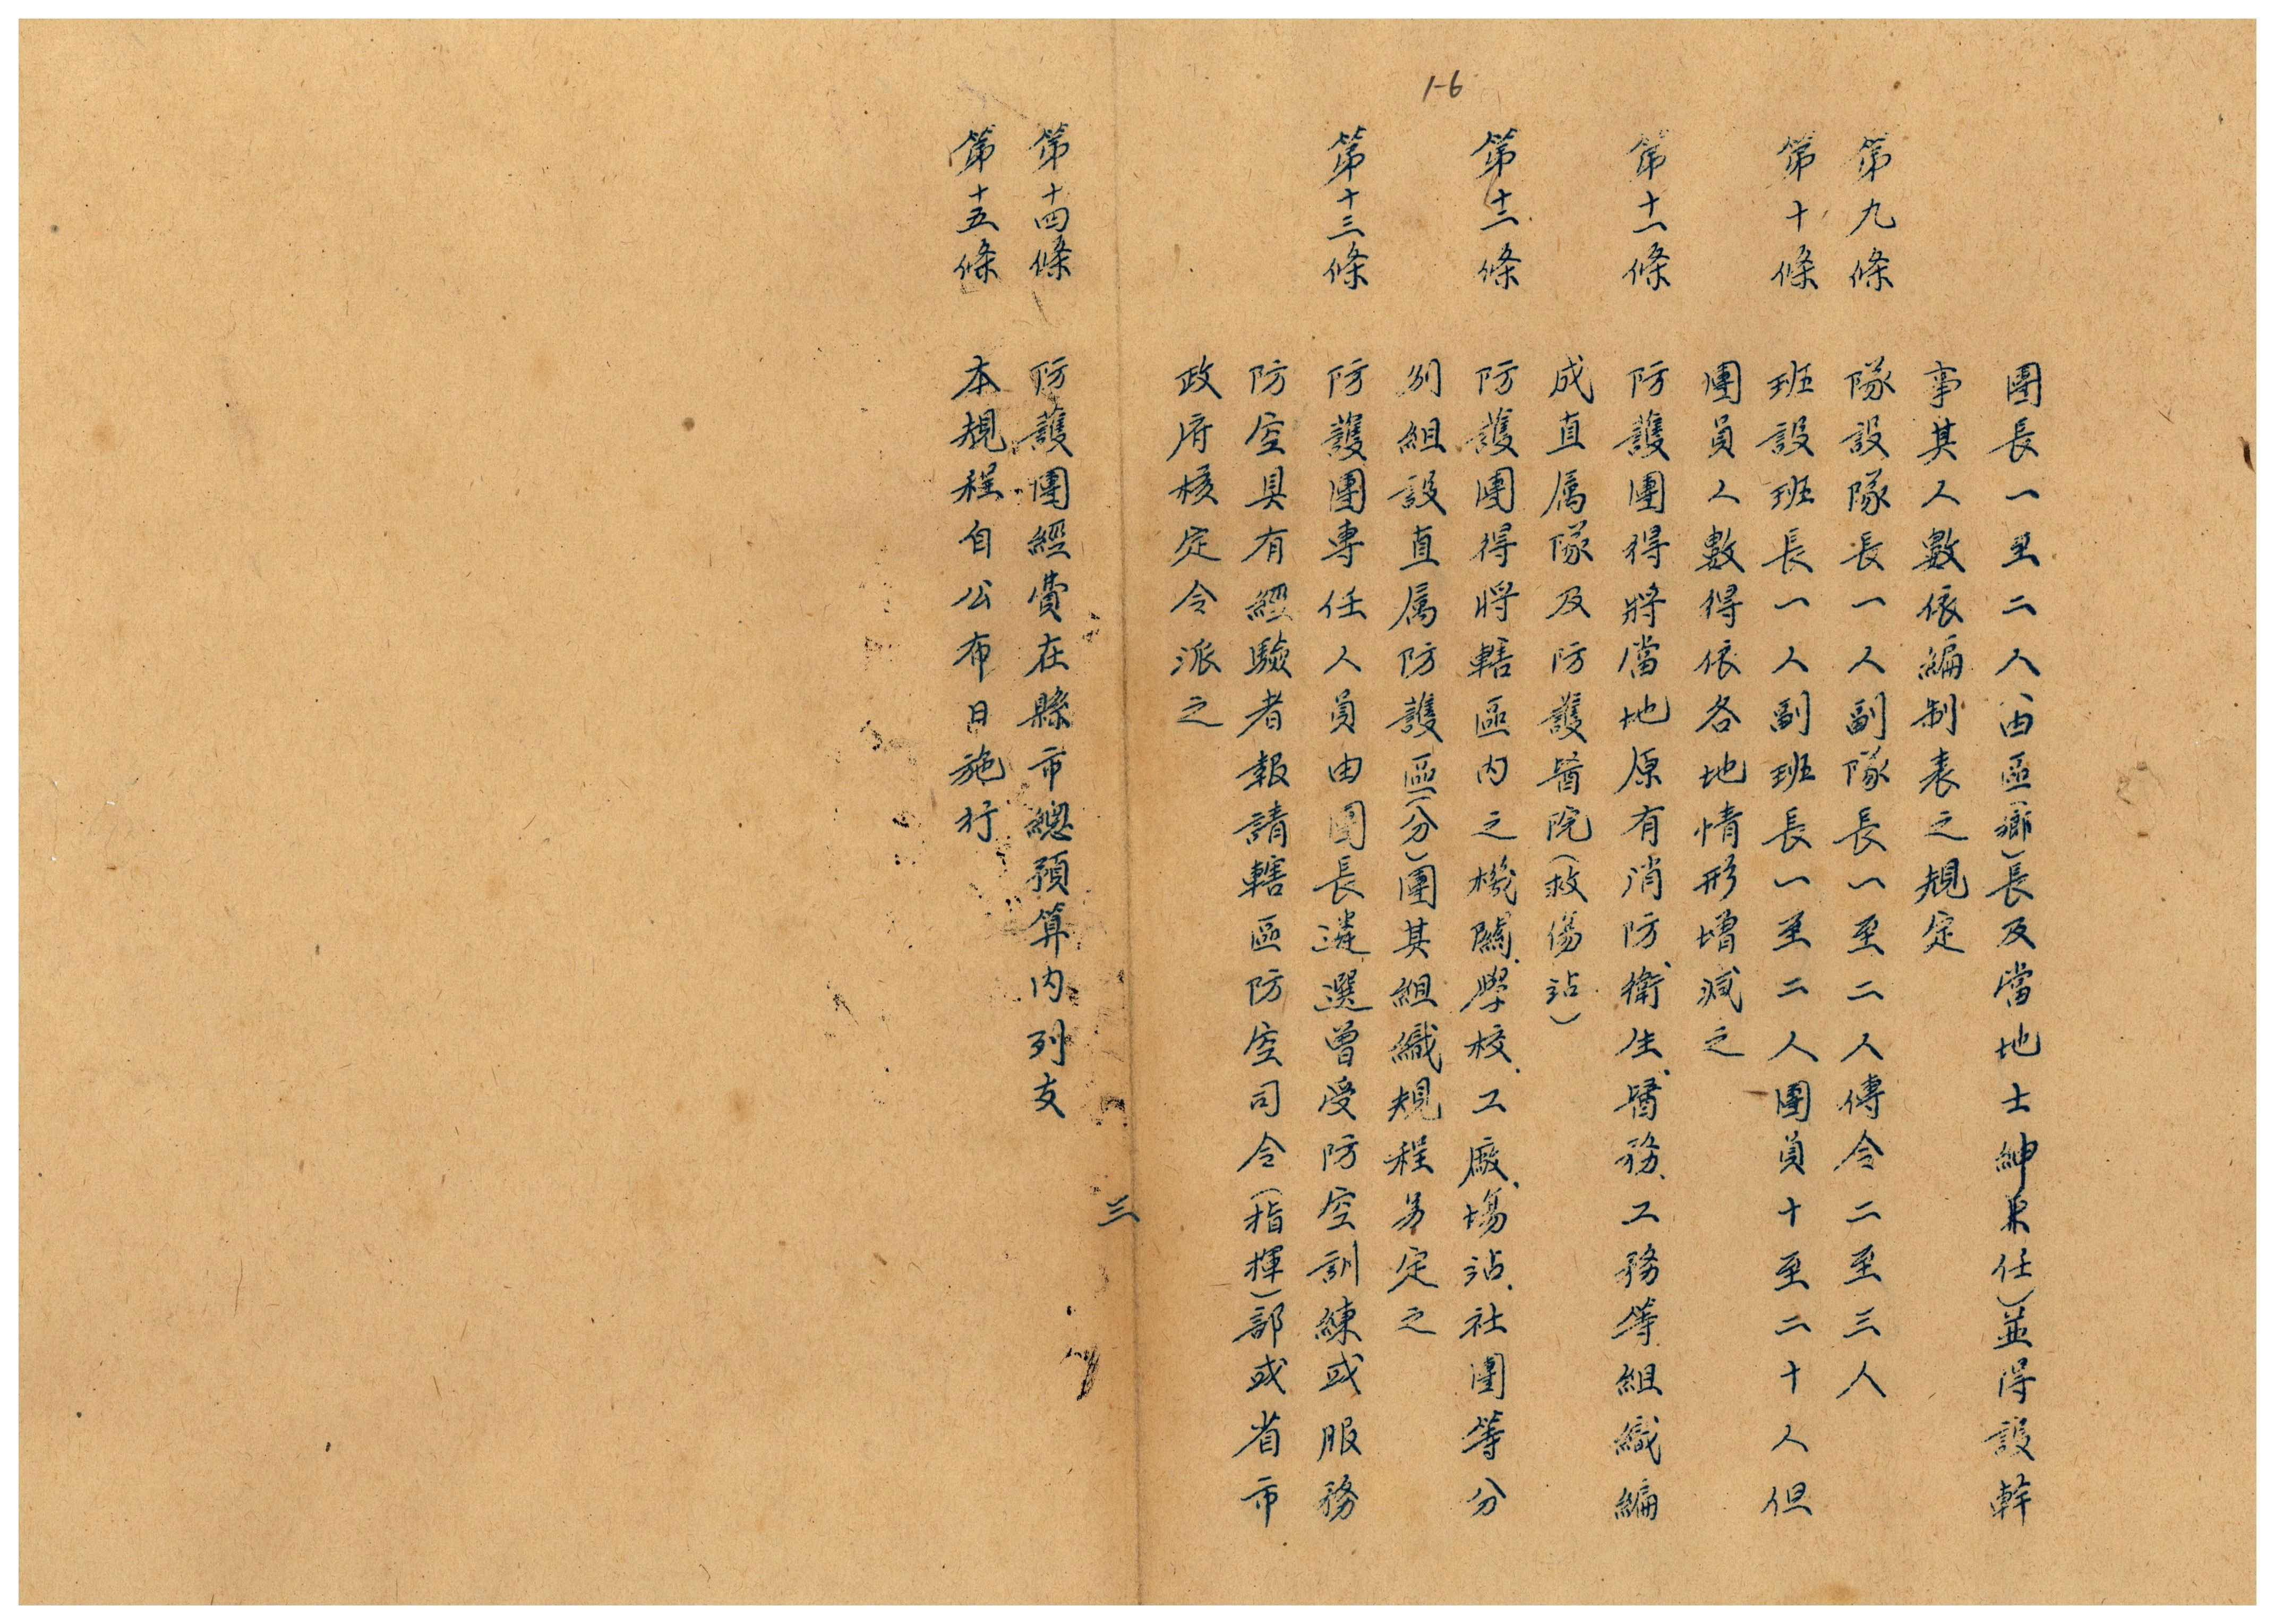 1-6
團長一至二人(由區(鄉)長及當地士紳兼任)並得設幹
事其人數依編制表之規定
第九條 隊設隊長一人副隊長一至二人傳令二至三人
第十條 班設班長一人副班長一至二人團員十至二十人但
團員人數得依各地情形增減之
第十一條 防護團得將當地原有消防、衛生、醫務、工務等組織編
成直屬隊及防護醫院(救傷站)
第十二條 防護團得將轄區內之機關、學校、工廠、場站、社團等分
別組設直屬防護區(分)團其組織規程另定之
第十三條 防護團專任人員由團長遴選曾受防空訓練或服務
防空具有經驗者報請轄區防空司令(指揮)部或省市
政府核定令派之
第十四條 防護團經費在縣市總預算內列支
第十五條 本規程自公布日施行
三